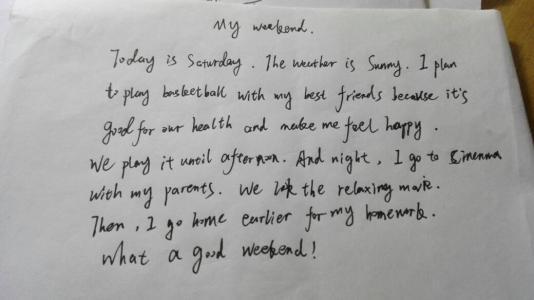 My weekend.
Today is Saturday. The weather is Sunny. I plan
to play basketball with my best friends because it's
good for our health and make me feel happy.
We play it until afternoon. And night, I go to
with my parents. We the relaxing
Then, I go home earlier for my homework.
What a good weekend!